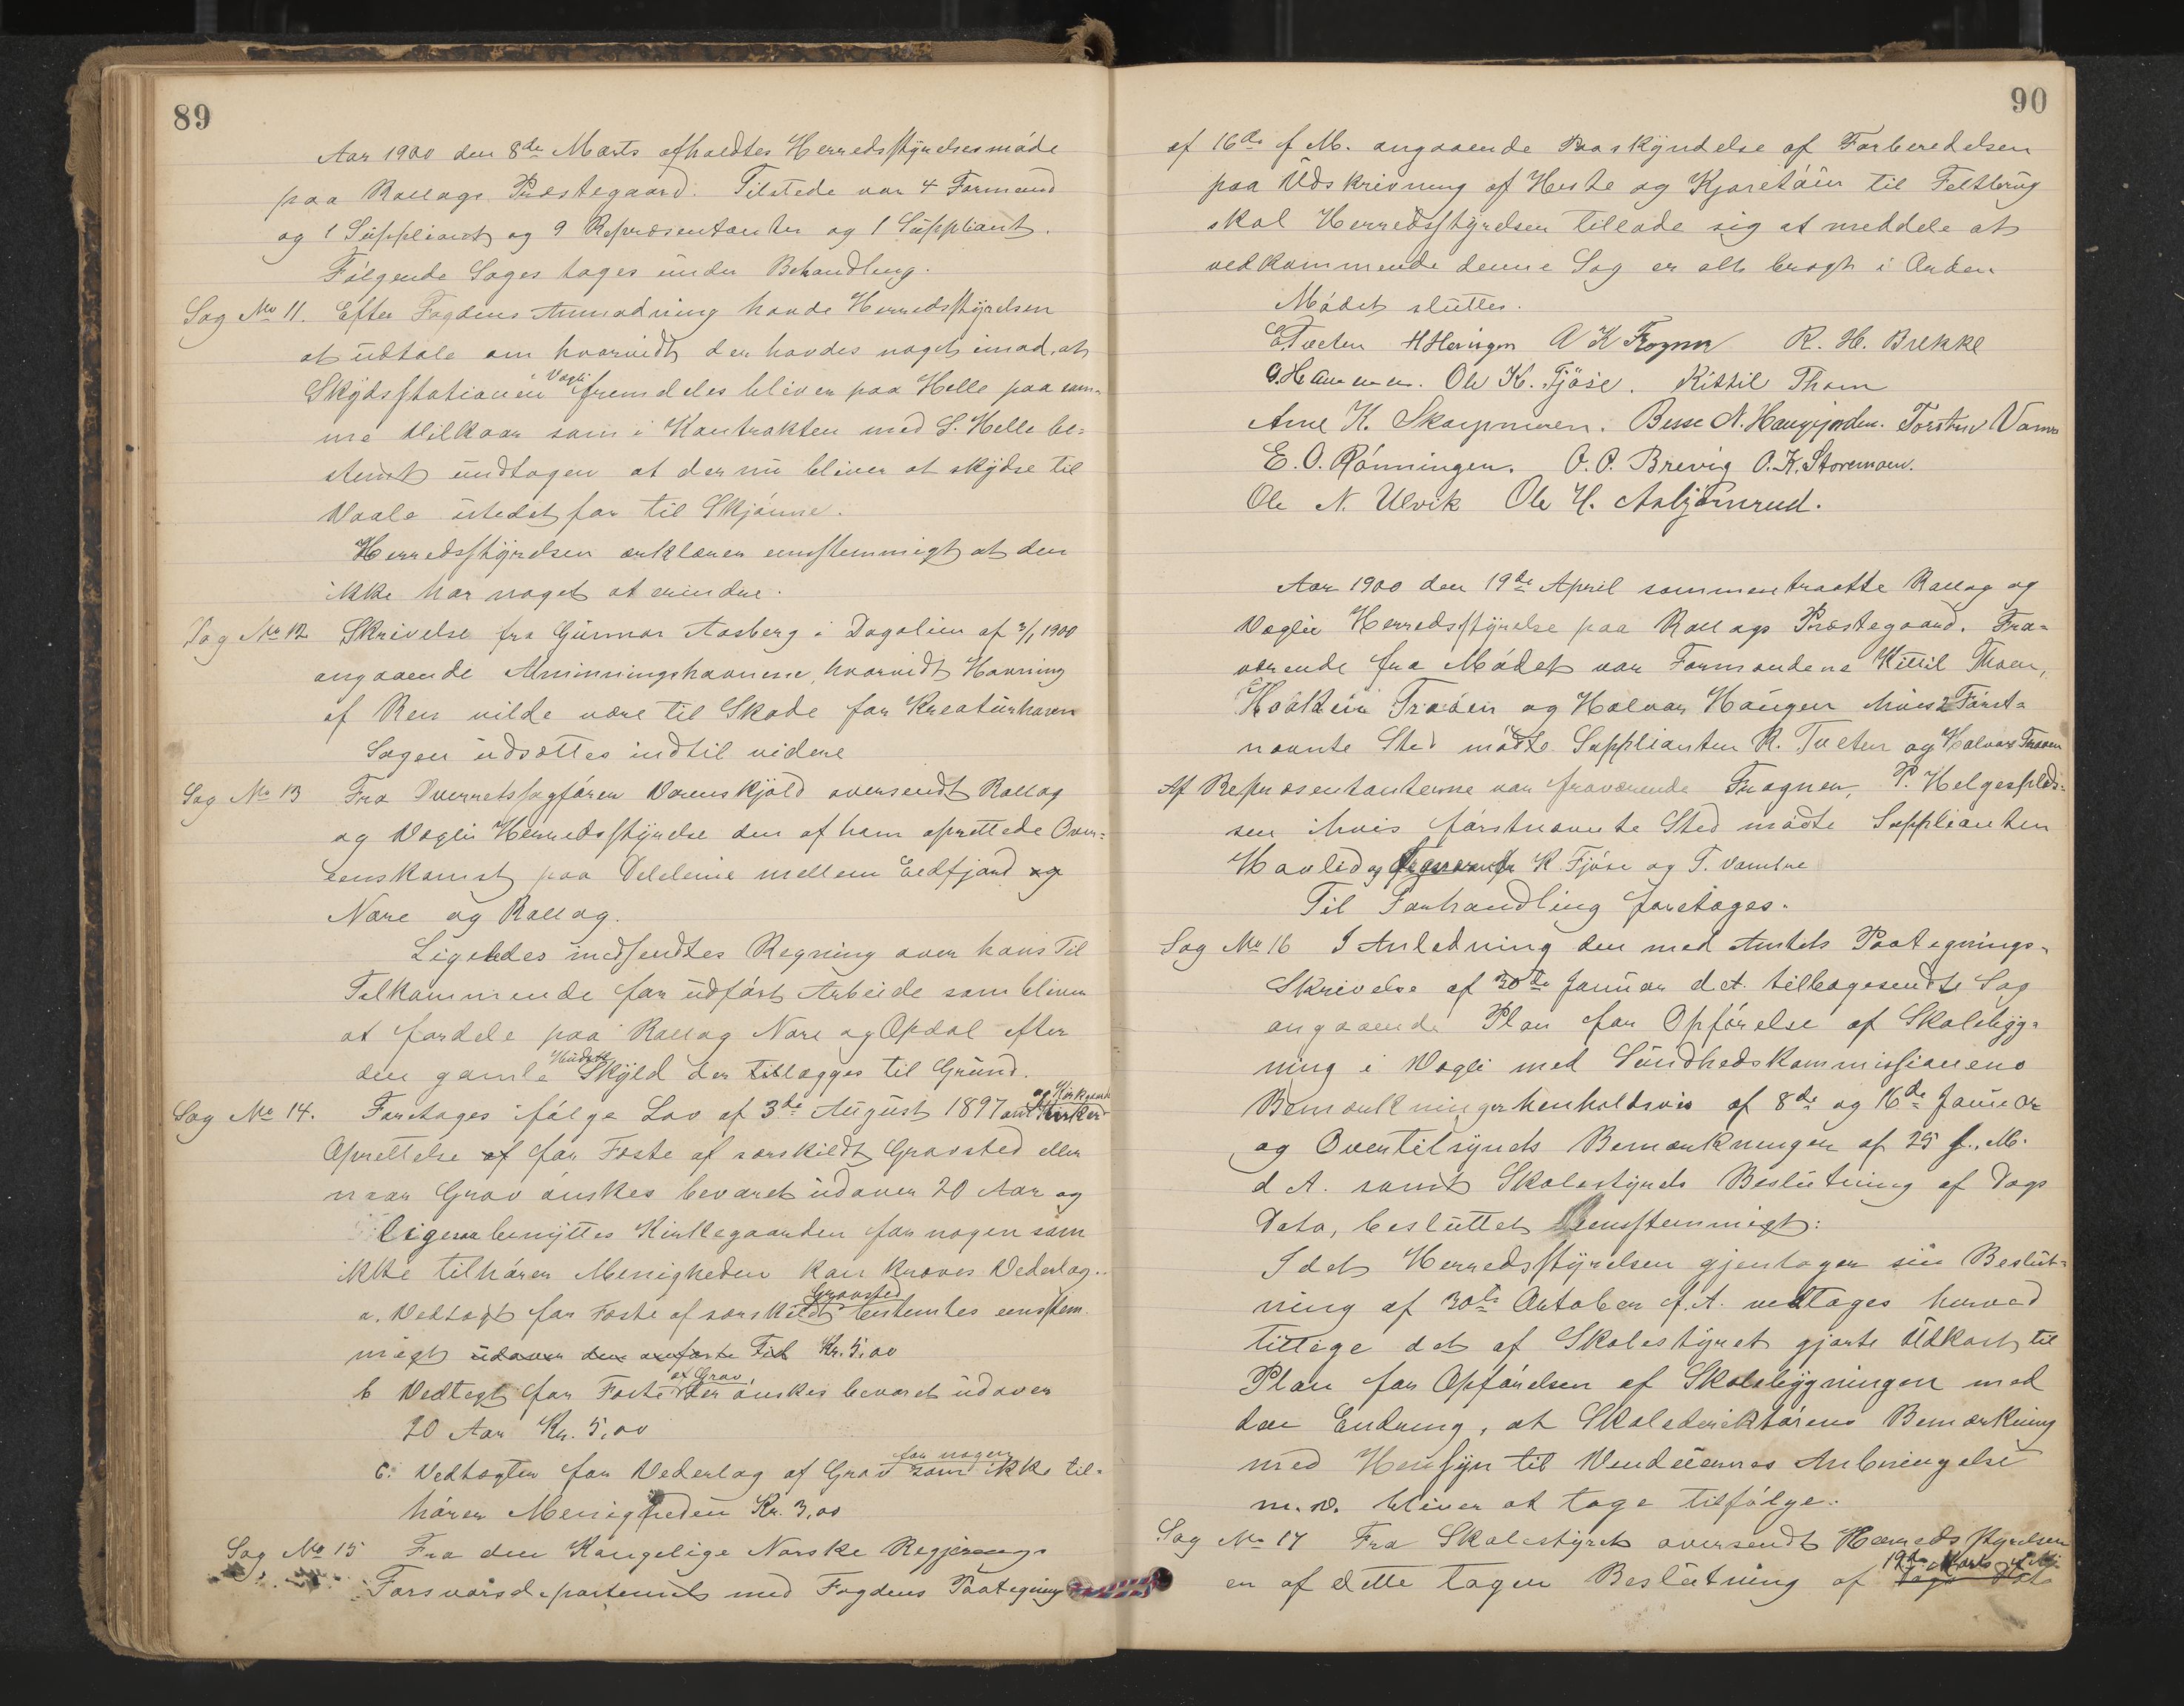 89
Aar 1900 den 8de Marts afholdtes Herredsstyrelsesmöde
paa Rollags Præstegaard. Tilstede var 4 Formænd
og 1 Suppliant og 9 Repræsentanter og 1 Suppliant.
Fölgende Sager toges under Behandling.
Sag No 11. Efter Fogdens Anmodning havde Herredsstyrelsen
at udtale om hvorvidt der havdes noget imod, at
Skydsstationen i Vegli fremdeles bliver paa Helle paa sam-
me Vilkaar som i Kontrakten med S. Helle be-
stemt undtagen at der nu bliver at skydse til
Vaale istedet for til Skjönne.
Herredsstyrelsen erklærer eenstemmigt at den
ikke har noget at erindre.
Sag No 12 Skrivelse fra Gunnar Aasberg i Dagalien af 3/1 1900
angaaende Almenningshavnene, hvorvidt Havning
af Ren vilde være til Skade for Kreaturhavn
Sagen udsættes indtil videre
Sag No 13 Fra Overretssagförer Vorenskjold oversendt Rollag
og Veglis Herredsstyrelse den af ham oprettede Over-
eenskomst paa Delelinie mellem Eidfjord og
Nore og Rollag.
Ligeledes indsendtes Regning over hans Til
Tilkommende for udfört Arbeide som bliver
at fordele paa Rollag Nore og Opdal efter
den gamle Skyld der tillægges til Grund.
Sag No 14. Foretages ifölge Lov af 3de August 1897 om Kirker og Kirkegaarde
Oprettelse af for Fæste af særskildt Gravsted eller
naar Grav önskes bevaret udover 20 Aar og
Ligesaa benyttes Kirkegaarden for nogen som
ikke tilhörer Menigheden kan kræves Vederlag.
a. Vedtægt for Fæste af særskildt Gravsted bestemtes eenstem-
migt udover den anförte Tid Kr. 5,00
b Vedtægt for Fæste af Grav der önskes bevaret udover
20 Aar Kr. 5,00
c. Vedtægter for Vederlag af Grav for nogen som ikke til-
hörer Menigheden Kr. 3,00
Sag No 15 Fra den Kongelige Norske Regjerings
Forsvarsdepartement med Fogdens Paategning
90
af 16de f M. angaaende Paaskyndelse af Forberedelsen
paa Udskrivning af Heste og Kjöretöier til Feltbrug
skal Herredsstyrelsen tillade sig at meddele at
vedkommende denne Sag er alt bragt i Orden
Mödet sluttes.
E Tveten H Heringen A K Frogner R. H. Brekke
G. Hammen. Ole K. Fjöse. Kittil Thoen
Arne K. Skarpmoen. Besse N. Haugjorden. Torsten Vamre
E. O. Rönningen. O. O. Brevig O. K. Storemoen.
Ole N. Ulvik Ole H. Asbjörnrud.
Aar 1900 den 19de April sammentraatte Rollag og
Veglie Herredsstyrelse paa Rollags Præstegaard. Fra-
værende fra Mödet var Formændene Kittil Thoen,
Traaen og Halvor Haugen hvis 2 Först-
nævnte Sted mödte Supplianten R. Tveten og Halvor Traaen
Af Repræsentanterne var fraværende Frogner, P. Helgesplads-
sen i hvis förstnævnte Sted mödte Supplianten
Havled og K Fjöse og T. Vamre
Til Forhandling foretages.
Sag No 16 I Anledning den med Amtets Paategnings-
Skrivelse af 30te Januar d. A. tilbagesendte Sag
angaaende Plan for Opförelse af Skolebyg-
ning i Vegli med Sundhedskommissionens
Bemærkninger henholdsvis af 8de og 16de Januar
og Overtilsynets Bemærkninger af 25 f. M.
d A. samt Skolestyrets Beslutning af Dags
Dato, besluttet eenstemmigt:
Idet Herredsstyrelsen gjentager sin Beslut-
ning af 30te Oktober f. A. vedtages herved
tillige det af Skolestyret gjorte Udkast til
Plan for Opförelsen af Skolebygningen med
den Endring, at Skoledirektörens Bemærkning
med Hensyn til Vinduernes Anbringelse
m. v. bliver at tage tilfölge.
Sag No 17 Fra Skolestyret oversendt Herredsstyrelsen
en af dette tagen Beslutning af 19de Marts